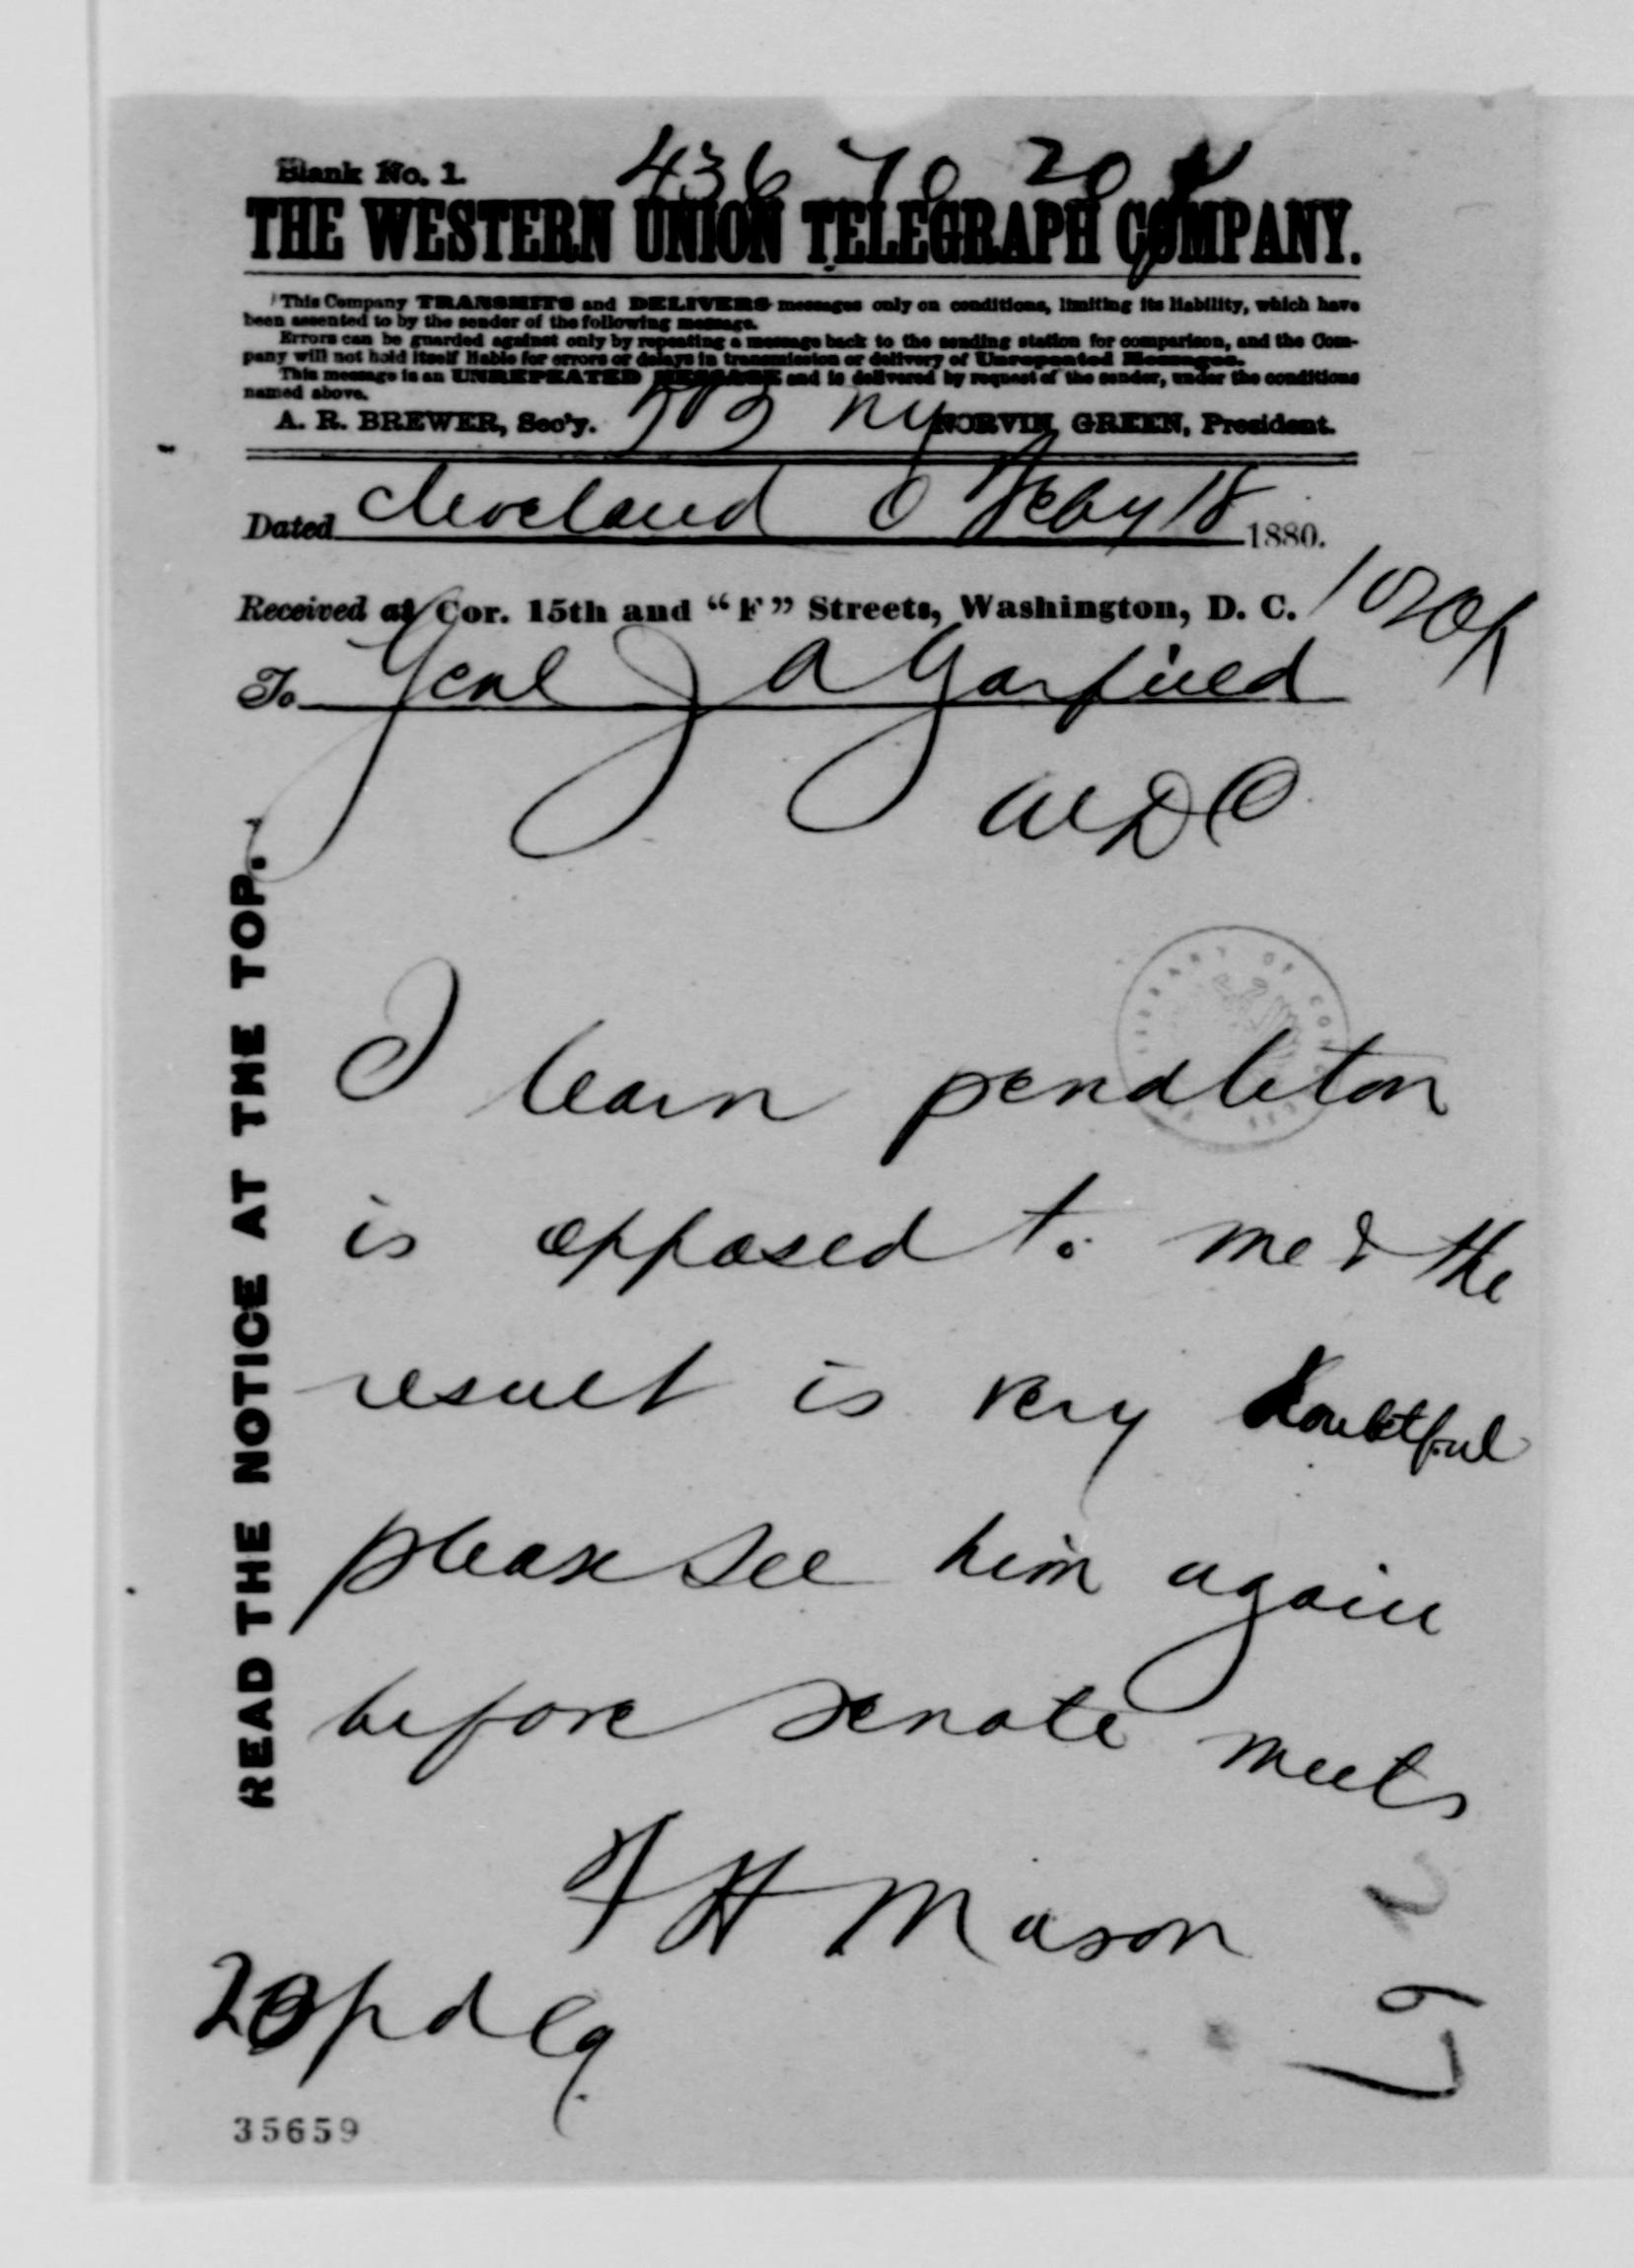 Blank No. 1.
436 70 20
THE WESTERN UNION TELEGRAPH COMPANY.
This Company TRANSMITS and DELIVERS messages only on conditions, limiting its liability, which have
been assented to by the sender of the following message.
Errors can be guarded against only by repeating a message back to the sending station for comparison, and the Com-
pany will not hold itself liable for errors or delays in transmission or delivery of Unrepeated Messages.
This message is an UNREPEATED MESSAGE and is delivered by request of the sender, under the conditions
named above.
A. R. BREWER, Sec'y. NORVIN GREEN, President.
Ny
Dated Cleveland O Feby 18 1880.
Received at Cor. 15th and "F" Streets, Washington, D. C.
To Genl J A Garfield
WDC
READ THE NOTICE AT THE TOP.
LIBRARY OF CONGRESS
I learn pendleton
is opposed to me & the
result is very doubtful
please see him again
before senate meets
F H Mason
20 pd
35659